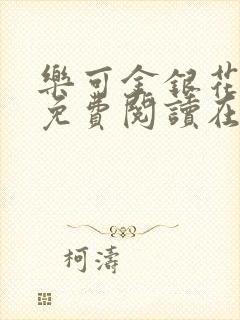 樂可金銀花
免費閱讀在
柯濤